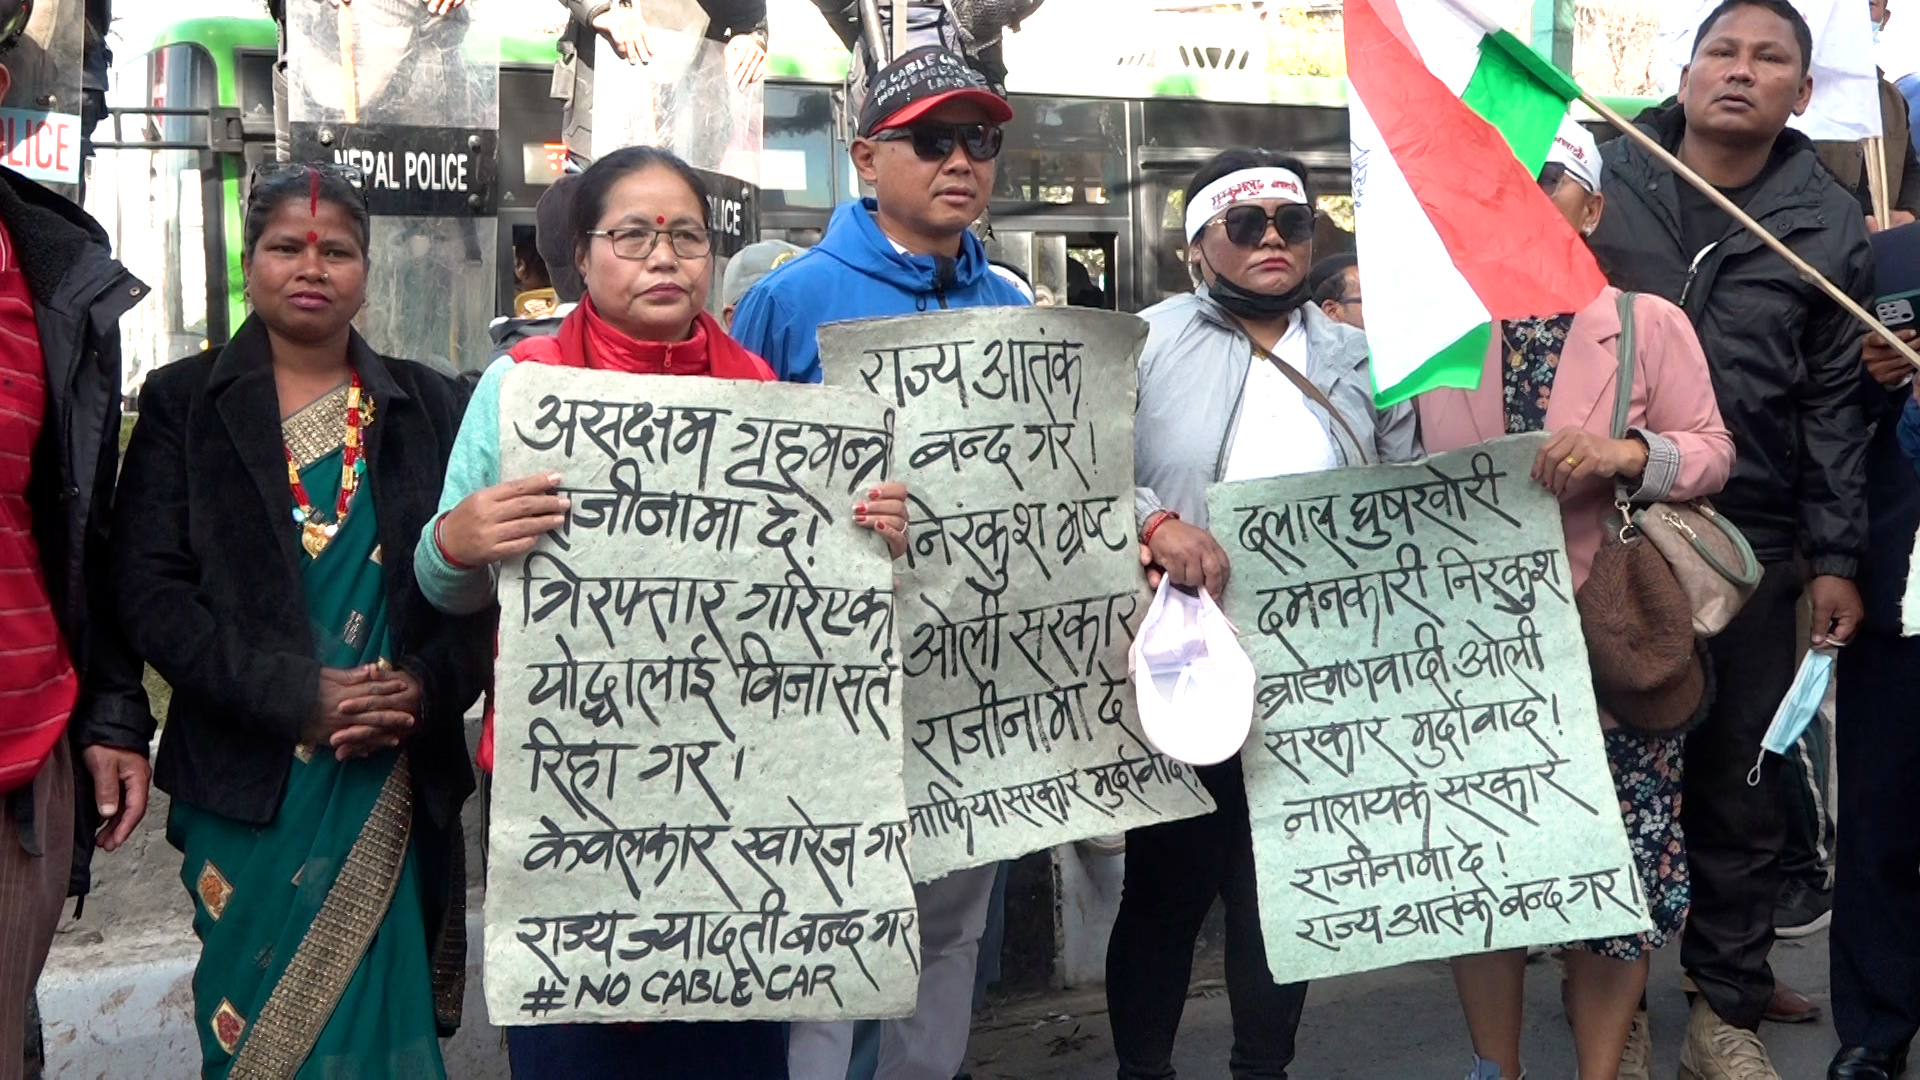 POLICE
NEPAL POLICE
LICE
NO CABLE
INDIGENOUS
LAND
असक्षम गृहमन्त्री
राजीनामा दे!
गिरफ्तार गरिएका
योद्धालाई बिना सर्त
रिहा गर।
केवलकार खारेज गर
राज्य ज्यादती बन्द गर
# NO CABLE CAR
राज्य आतंक
बन्द गर!
निरंकुश भ्रष्ट
ओली सरकार
राजीनामा दे
माफिया सरकार मुर्दावाद!
दलाल घुषखोरी
दमनकारी निरंकुश
ब्राह्मणवादी ओली
सरकार मुर्दावाद!
नालायक सरकार
राजीनामा दे!
राज्य आतंक बन्द गर!